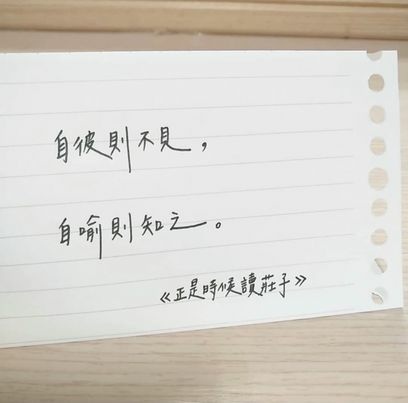 自彼則不見，
自喻則知之。
《正是時候讀莊子》